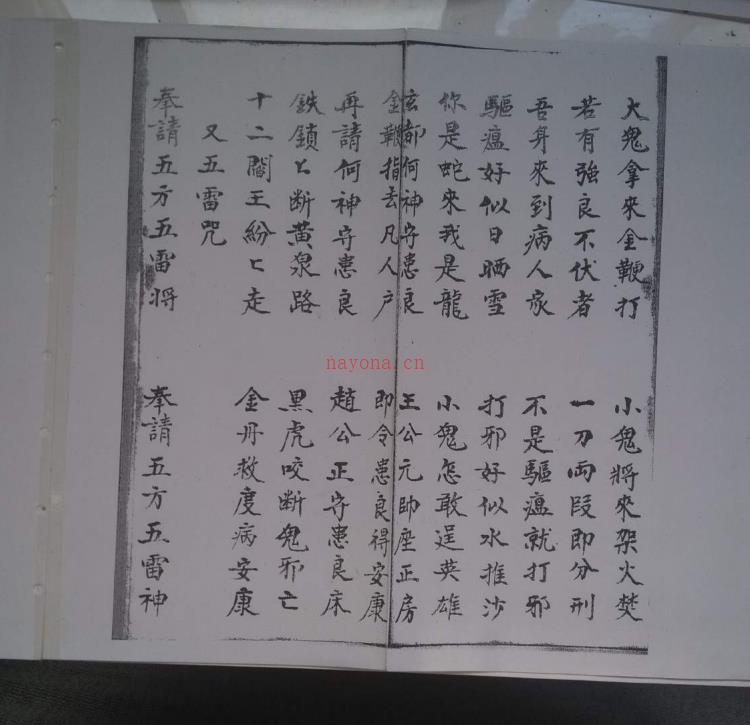 大鬼拿來金鞭打 小鬼將來架火焚
若有強良不伏者 一刀兩段即分刑
吾身來到病人家 不是驅瘟就打邪
驅瘟好似日晒雪 打邪好似水推沙
你是蛇來我是龍 小鬼怎敢逞英雄
玄都何神守患良 王公元帥座正房
金鞭指去凡人户 即令患良得安康
再請何神守患良 趙公正守患良床
鉄鎖〻断黄泉路 黑虎咬断鬼邪亡
十二閻王紛〻走 金丹救度病安康
又五雷咒
奉請五方五雷将 奉請五方五雷神
nayona.cn